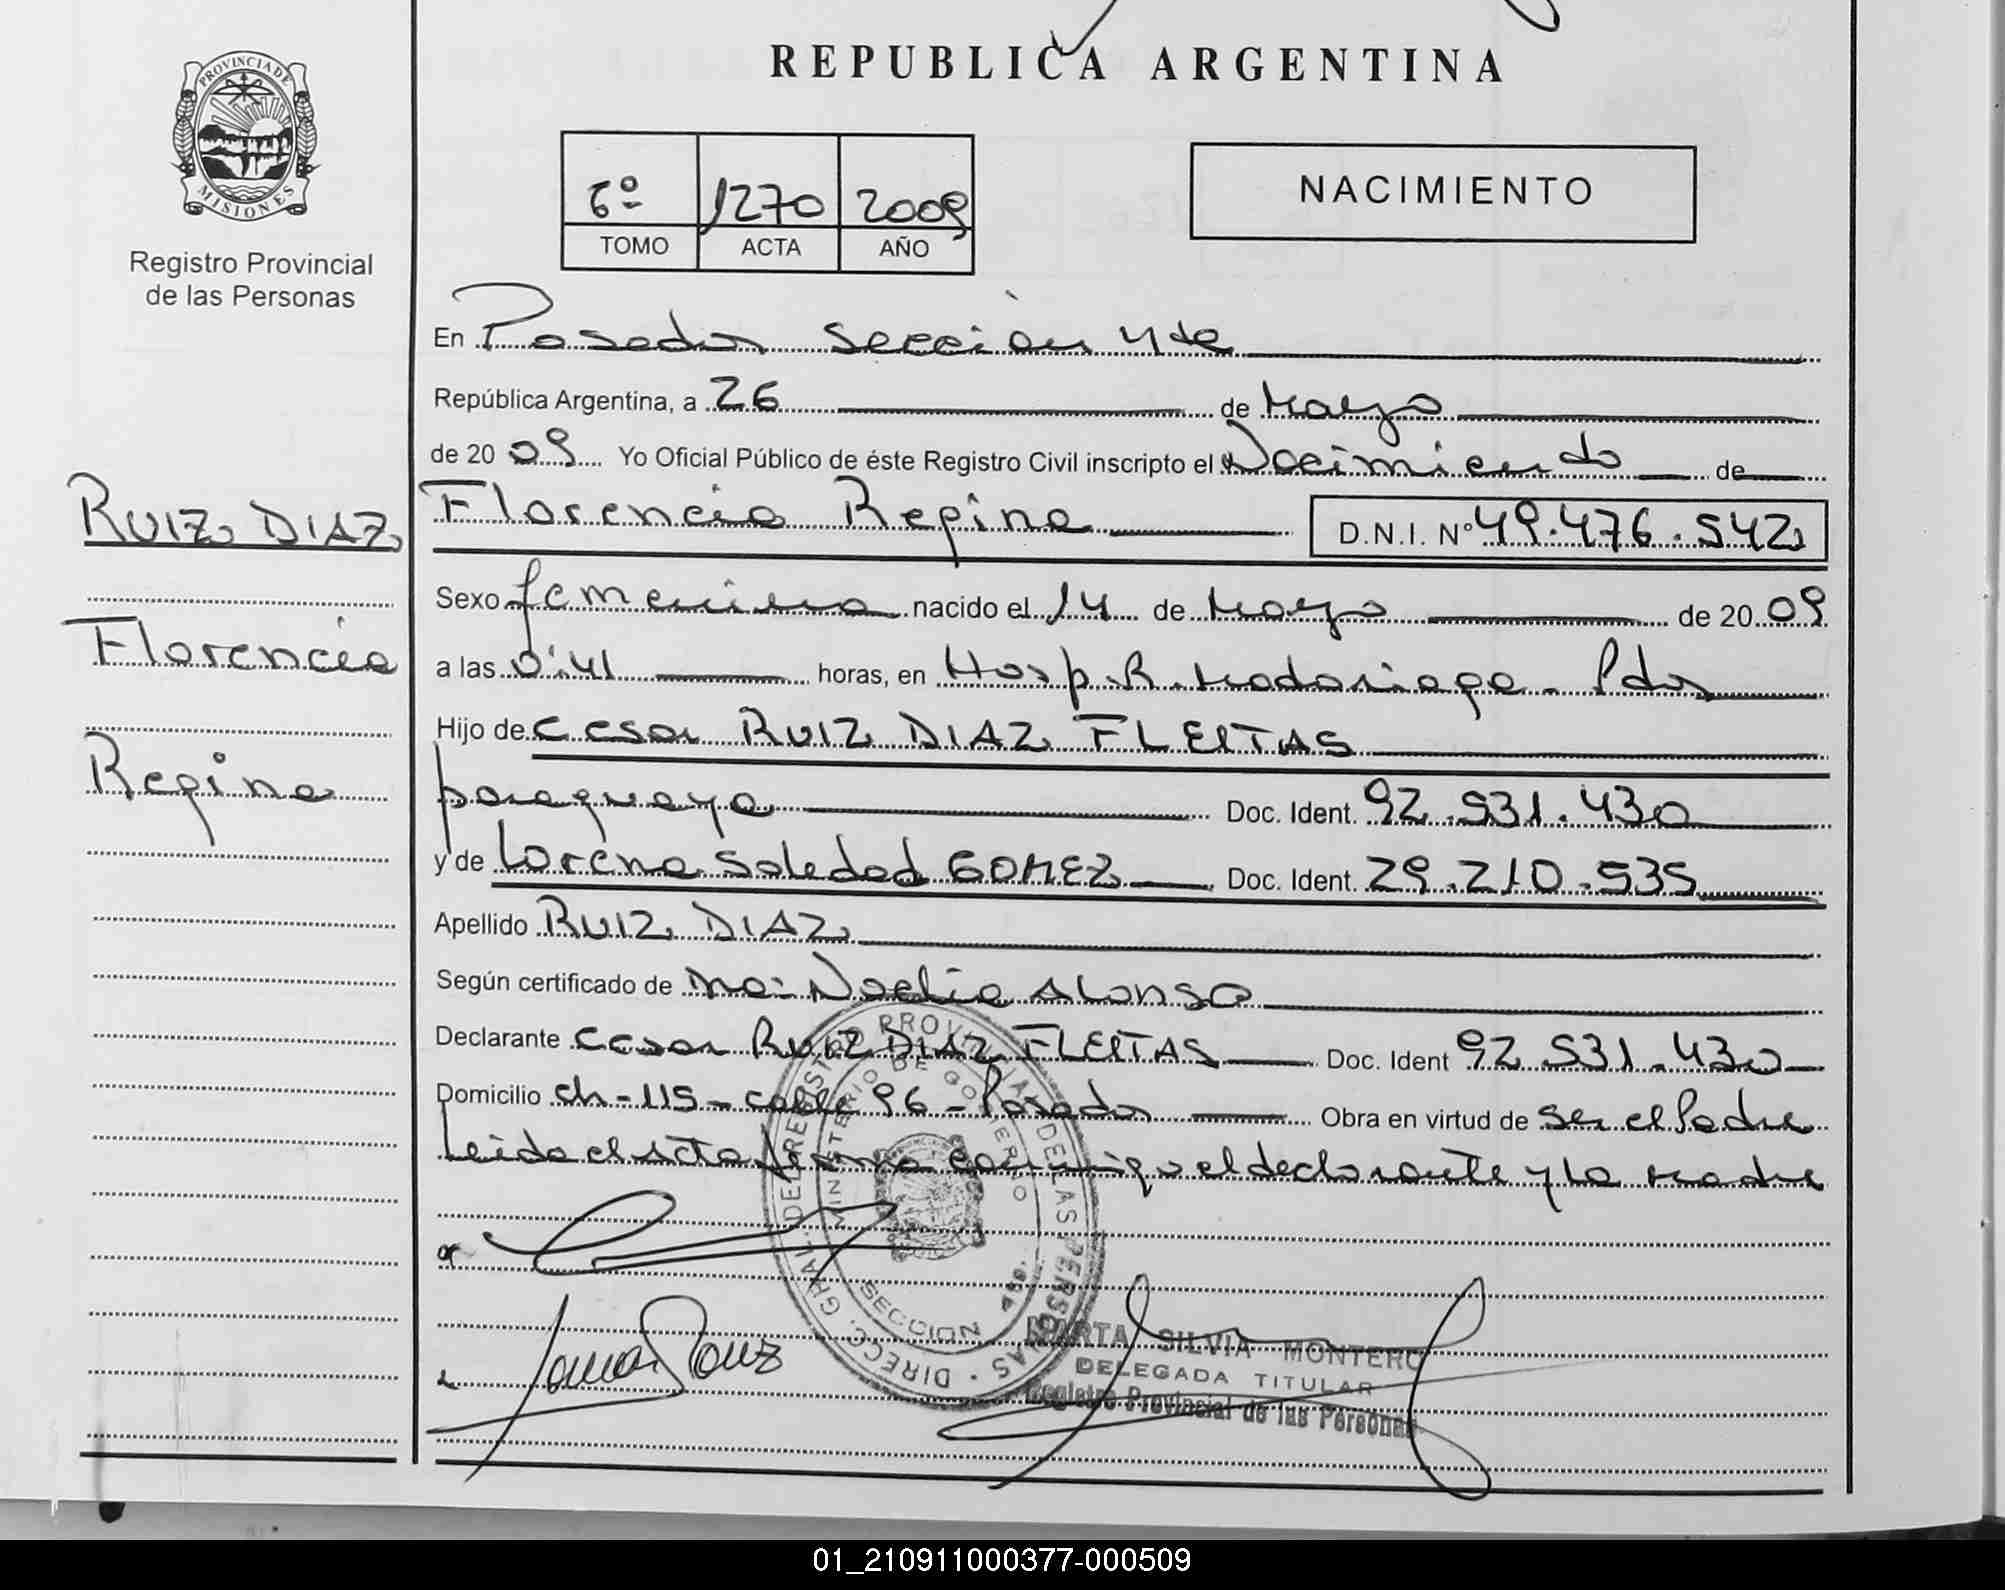 REPUBLICA ARGENTINA
PROVINCIA DE
MISIONES
Registro Provincial
de las Personas
6º 1270 2009
TOMO ACTA AÑO
NACIMIENTO
En Posadas Sección 4ta
República Argentina, a 26 de Mayo
de 20 09 Yo Oficial Público de éste Registro Civil inscripto el Nacimiento de
RUIZ DIAZ
Florencia Regina D.N.I. Nº 49.476.542
Sexo femenino nacido el 14 de Mayo de 20 09
Florencia
a las 0:41 horas, en Hosp. R. Madariaga - Pdas
Hijo de Cesar RUIZ DIAZ FLEITAS
Regina
paraguaya Doc. Ident. 92.531.430
y de Lorena Soledad GOMEZ Doc. Ident. 29.210.535
Apellido RUIZ DIAZ
Según certificado de Noelia Alonso
Declarante Cesar RUIZ DIAZ FLEITAS Doc. Ident 92.531.430
Domicilio ch-115-calle 96-Posadas Obra en virtud de ser el Padre
Leida el acta firma conmigo el declarante y la madre
DIRECC. GRAL. DEL REGISTRO PROVINCIAL DE LAS PERSONAS
MINISTERIO DE GOBIERNO
SECCION
MARTA SILVIA MONTERO
DELEGADA TITULAR
Registro Provincial de las Personas
01_210911000377-000509